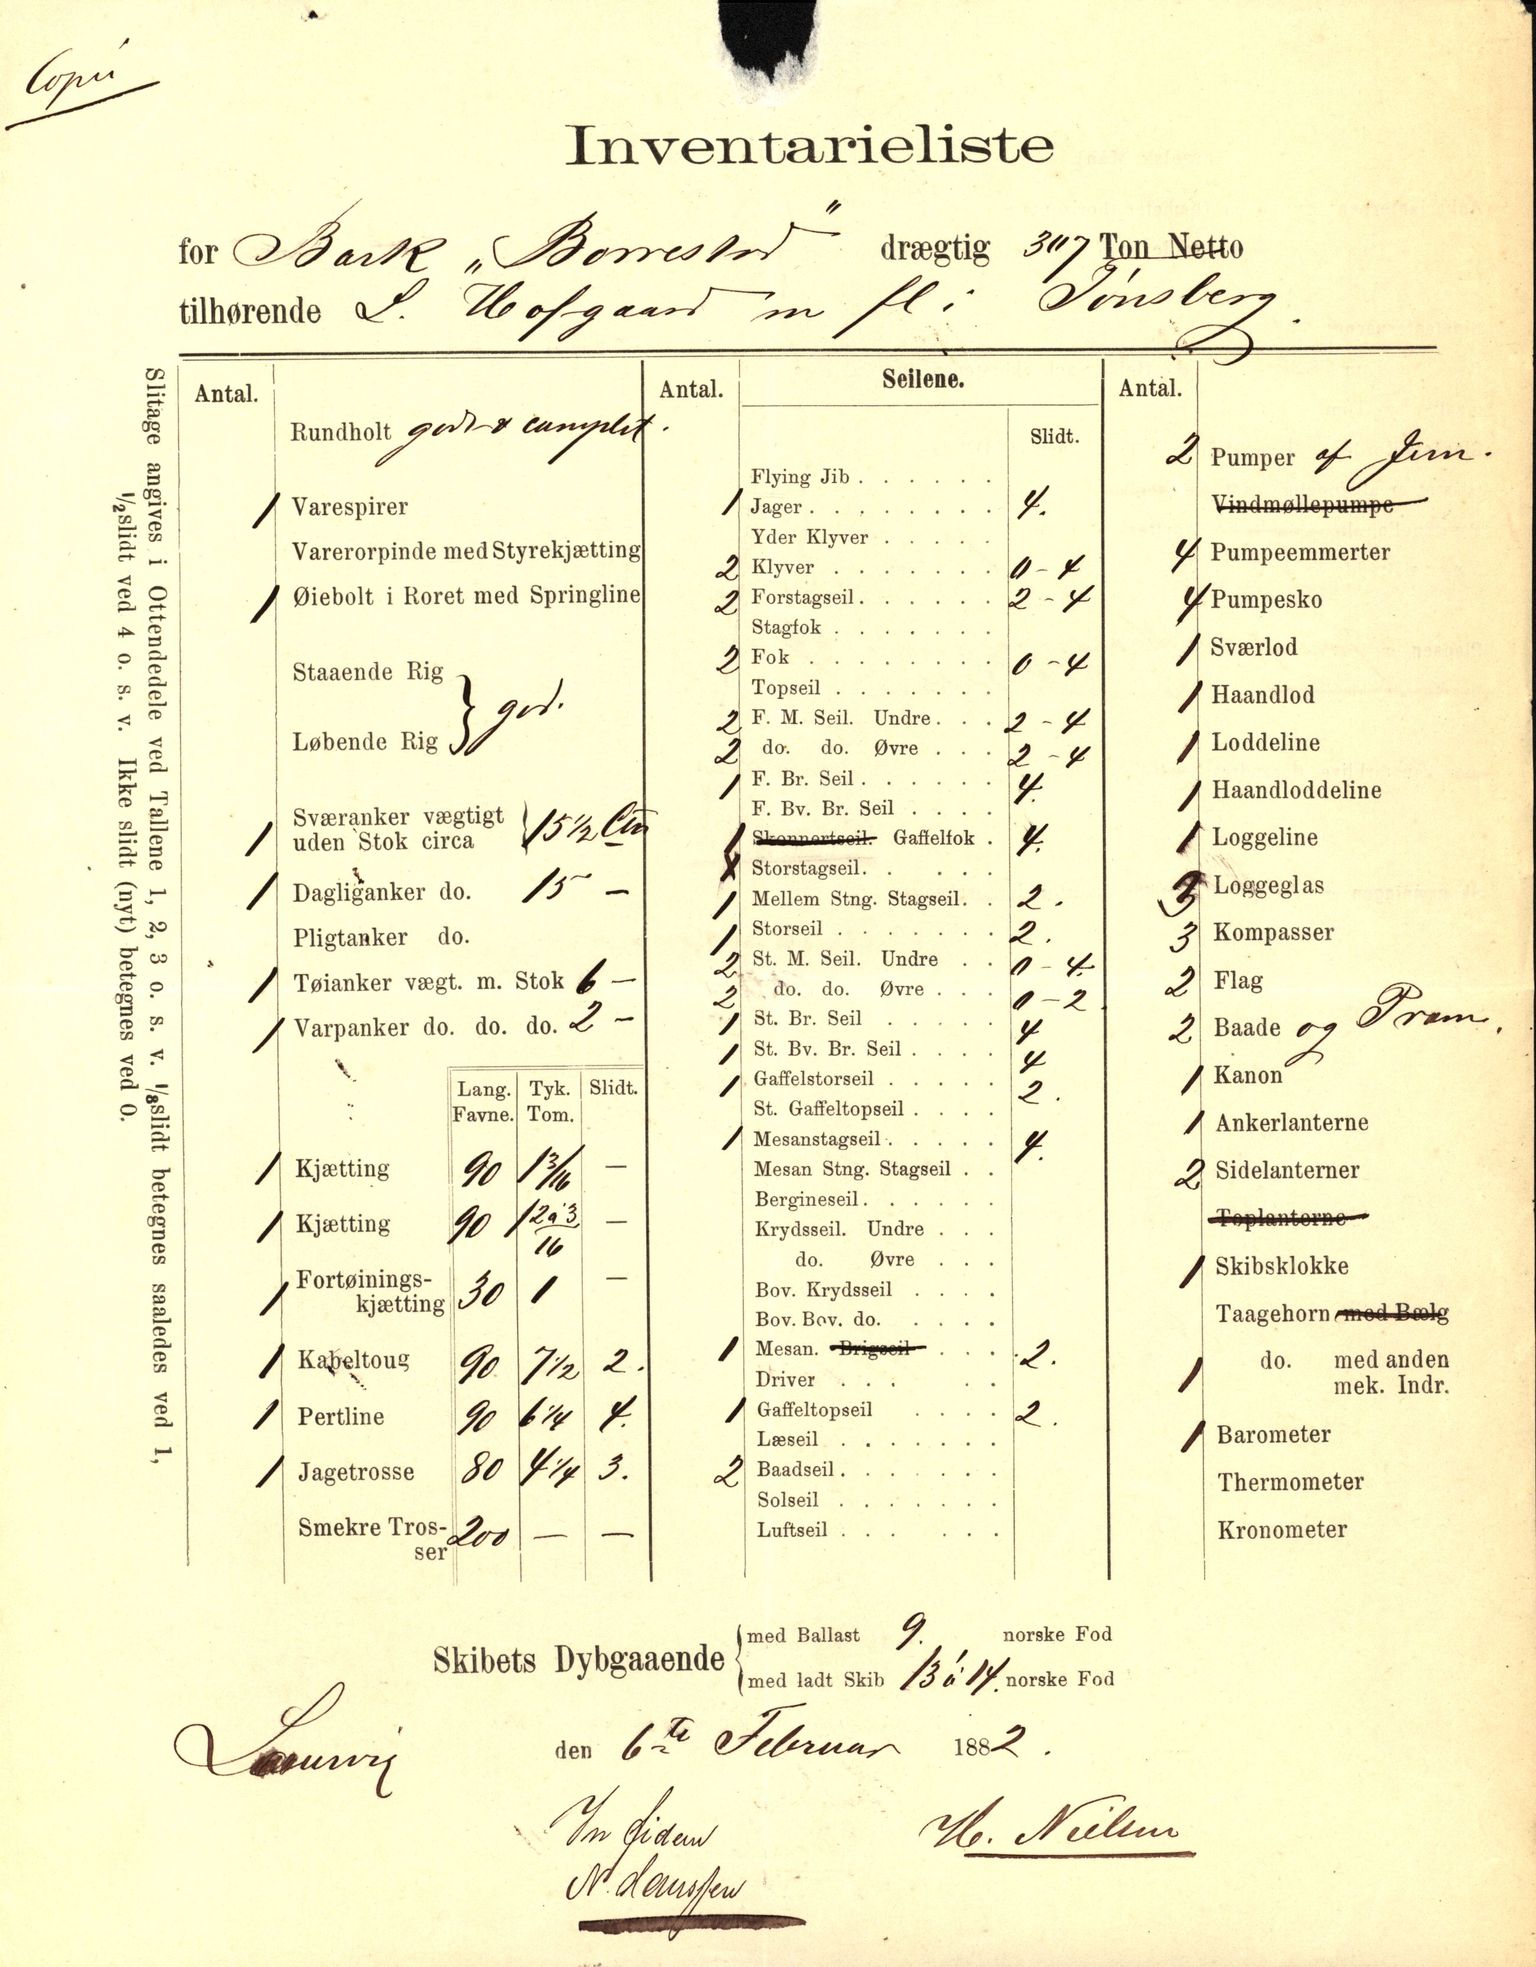 Copii
Inventarieliste
for Bark „Borrestad" drægtig 307 Ton Netto
tilhørende L. Hofgaard m fl i Tønsberg.
Slitage angives i Ottendedele ved Tallene 1, 2, 3 o. s. v. ⅛ slidt betegnes saaledes ved 1,
½ slidt ved 4 o. s. v. Ikke slidt (nyt) betegnes ved 0.
Antal.
Rundholt godt & complet.
1 Varespirer
Varerorpinde med Styrekjætting
1 Øiebolt i Roret med Springline
Staaende Rig
} god.
Løbende Rig
1 Sværanker vægtigt
uden Stok circa } 15 1/2 Ctn
1 Dagliganker do. 15 —
Pligtanker do.
1 Tøianker vægt. m. Stok 6 —
1 Varpanker do. do. do. 2 —
Lang. Tyk. Slidt.
Favne. Tom.
1 Kjætting 90 1 3/16 —
1 Kjætting 90 1 2à3/16 —
1 Fortøinings-
kjætting 30 1 —
1 Kabeltoug 90 7 1/2 2.
1 Pertline 90 6 1/4 4.
1 Jagetrosse 80 4 1/4 3.
Smekre Tros-
ser 200 — —
Antal. Seilene.
Slidt.
Flying Jib . . . . . .
1 Jager . . . . . . . . 4.
Yder Klyver . . . . .
2 Klyver . . . . . . . 0 - 4
2 Forstagseil . . . . . . 2 - 4
Stagfok . . . . . . .
2 Fok . . . . . . . . 0 - 4
Topseil . . . . . . .
2 F. M. Seil. Undre . . . 2 - 4
2 do. do. Øvre . . . 2 - 4
1 F. Br. Seil . . . . . . 4.
F. Bv. Br. Seil . . . .
1 Skonnertseil. Gaffelfok . 4.
Storstagseil . . . . .
1 Mellem Stng. Stagseil . . 2.
1 Storseil . . . . . . . 2.
2 St. M. Seil. Undre . . 0 - 4.
2 do. do. Øvre . . . 0 - 2
1 St. Br. Seil . . . . . 4
1 St. Bv. Br. Seil . . . . 4
1 Gaffelstorseil . . . . . 2.
St. Gaffeltopseil . . . .
1 Mesanstagseil . . . . . 4.
Mesan Stng. Stagseil . .
Bergineseil . . . . . .
Krydsseil. Undre . . .
do. Øvre . . .
Bov. Krydsseil . . . .
Bov. Bov. do. . . . .
1 Mesan. Brigseil . . . 2.
Driver . . . . .
1 Gaffeltopseil . . . . 2.
Læseil . . . . . . .
2 Baadseil . . . . . . .
Solseil . . . . . . .
Luftseil . . . . . .
Antal.
2 Pumper af Jern.
Vindmøllepumpe
4 Pumpeemmerter
4 Pumpesko
1 Sværlod
1 Haandlod
1 Loddeline
1 Haandloddeline
1 Loggeline
3 Loggeglas
3 Kompasser
2 Flag
2 Baade og Pram.
1 Kanon
1 Ankerlanterne
2 Sidelanterner
Toplanterne
1 Skibsklokke
Taagehorn med Bælg
1 do. med anden
mek. Indr.
1 Barometer
Thermometer
Kronometer
Skibets Dybgaaende { med Ballast 9. norske Fod
med ladt Skib 13 à 14. norske Fod
Laurvig den 6te Februar 1882.
In fidem H. Nielsen
N. Janssen